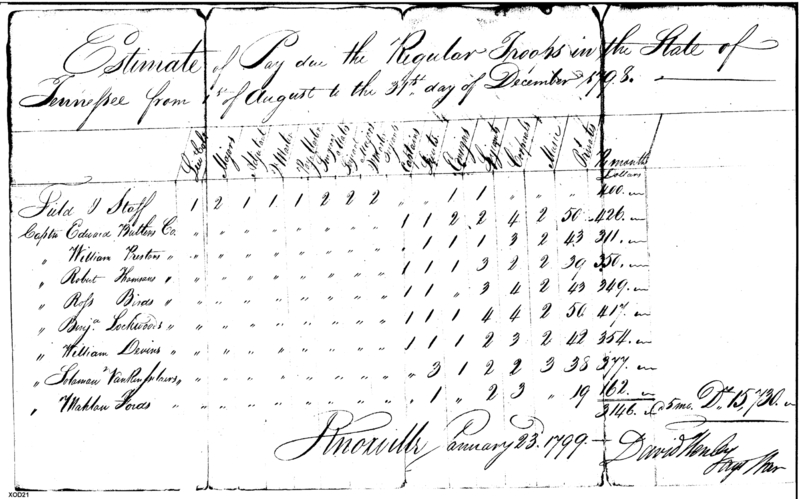 Estimate of Pay due the Regular Troops in the State of
Tennessee from 1st of August to the 31st day of December 1798.
Majors Adjutant Captains Ensigns Corporals Music Privates Pr month
Dollars
Field & Staff 1 2 1 1 1 2 2 2 " " 1 1 " " " 400.
Captn Edward Butlers Co. " " " " " " " " 1 1 2 2 4 2 50 426.
" William Prestons " " " " " " " " 1 1 1 1 3 2 43 311.
" Robert Thomsons " " " " " " " " " 1 1 1 3 2 2 39 350.
" Ross Birds " " " " " " " " 1 1 " 3 4 2 43 349.
" Benja. Lockwoods " " " " " " " " " 1 1 1 4 4 2 50 417.
" William Devins " " " " " " " " " 1 1 1 2 3 2 42 354.
" Solomon Van Rensselaers " " " " " " " " " 3 1 2 2 3 38 377.
" Mahlan Fords " " " " " " " " " 1 " 2 3 " 19 162.
3146. @ 5 mo. Drs 15,730.
Knoxville January 23d. 1799.
David Henley
XOD21